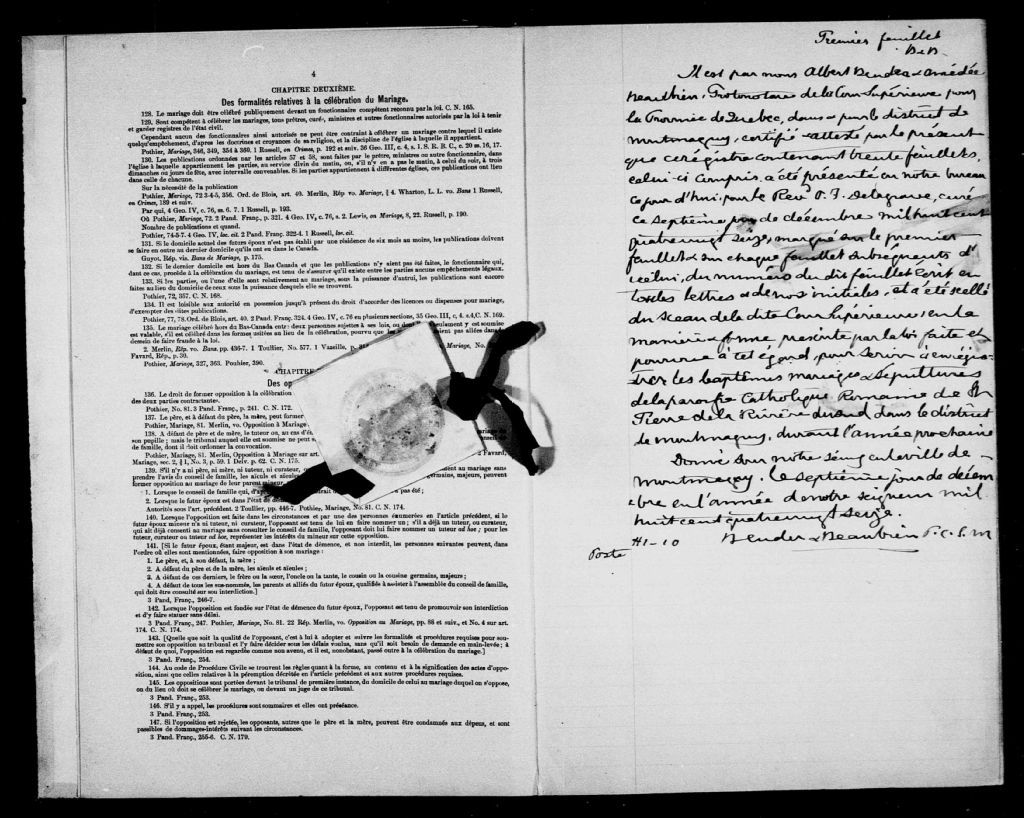 4
CHAPITRE DEUXIÈME.
Des formalités relatives à la célébration du Mariage.
128. Le mariage doit être célébré publiquement devant un fonctionnaire compétent reconnu par la loi. C. N. 165.
129. Sont compétent à célébrer les mariages, tous prêtres, curés, ministres et autres fonctionnaires autorisés par la loi à tenir
et garder registres de l'état civil.
Cependant aucun des fonctionnaires ainsi autorisés ne peut être contraint à célébrer un mariage contre lequel il existe
quelqu'empêchement, d'après les doctrines et croyances de sa religion, et la discipline de l'église à laquelle il appartient.
Pothier, Mariage, 346, 349, 354 à 360. 1 Russell, on Crimes, p. 192 et suiv. 36 Geo. III, c. 4, s. 1. S. R. B. C., c. 20 ss. 16, 17.
130. Les publications ordonnées par les articles 57 et 58, sont faites par le prêtre, ministre ou autre fonctionnaire, dans
l'église à laquelle appartiennent les parties, au service divin du matin, ou, s'il n'y en a pas le matin, à celui du soir, à trois
dimanches ou jours de fête, avec intervalle convenables. Si les parties appartiennent à différentes églises, ces publications ont lieu
dans celle de chacune.
Sur la nécessité de la publication
Pothier, Mariage, 72 3-4-5, 356. Ord. de Blois, art. 40. Merlin, Rép vo. Mariage, § 4. Wharton, L. L. vo. Bans 1 Russell,
on Crimes, 189 et suiv.
Par qui, 4 Geo. IV, c. 76, ss. 6. 7. 1 Russell, p. 193.
Où Pothier, Mariage, 72. 2 Pand. Franç., p. 321. 4 Geo. IV, c. 76, s. 2. Lewis, on Mariage, 8, 22. Russell, p. 190.
Nombre de publications et quand.
Pothier, 74-5-7. 4 Geo. IV, loc. cit. 2 Pand. Franç. 322-4. 1 Russell, loc. cit.
131. Si le domicile actuel des futurs époux n'est pas établi par une résidence de six mois au moins, les publications doivent
se faire en outre au dernier domicile qu'ils ont eu dans le Canada.
Guyot, Rép. vis. Bans de Mariage, p. 175.
132. Si le dernier domicile est hors du Bas-Canada et que les publications n'y aient pas été faites, le fonctionnaire qui,
dant ce cas, procède à la célébration du mariage, est tenu de s'assurer qu'il existe entre les parties aucuns empêchements légaux.
133. Si les parties, ou l'une d'elle sont relativement au mariage, sous la puissance d'autrui, les publications sont encore
faites au lieu du domicile de ceux sous la puissance desquels elle se trouvent.
Pothier, 72, 357. C. N. 168.
134. Il est loisible aux autorité en possession jusqu'à présent du droit d'accorder des licences ou dispenses pour mariage,
d'exempter des dites publications.
Pothier, 77, 78. Ord. de Blois, art. 40. 2 Pand. Franç. 324. 4 Geo. IV, c. 76 en plusieurs sections, 35 Geo. III, c. 4. s. 4, C. N. 169.
135. Le mariage célébré hors du Bas-Canada entre deux personnes sujettes à ses lois, ou dont seulement y est soumise
est valable, s'il est célébré dans les formes usitées au lieu de la célébration, pourvu que les aient pas allées dans le
dessein de faire fraude à la loi.
2. Merlin, Rép. vo. Bans, pp. 436-7. 1 Toullier, No. 577. 1 Vazeille, p. Mariage, No.
Favard, Rép., p. 30.
Pothier, Mariage, 327, 363. Pouhier, 390.
CHAPITRE
Des op
136. Le droit de former opposition à la célébration
des deux parties contractantes.
Pothier, No. 81. 3 Pand. Franç., p. 241. C. N. 172.
137. Le père, et à défaut du père, la mère, peut former
Pothier, Mariage, 81. Merlin, vo. Opposition à Mariage
138. A défaut de père et de mère, le tuteur ou, au cas d'é
son pupille ; mais le tribunal auquel elle est soumise ne peut s
de famille, dont il doit ordonner la convocation.
Pothier, Mariage, 81. Merlin, Opposition à Mariage sur art 2 Favard,
Mariage, sec. 2, § 1, No. 3, p. 59. 1 Delv. p. 62. C. N. 175.
139. S'il n'y a ni père, ni mère, ni tuteur, ni curateur, o ment au mariage sans
prendre l'avis du conseil de famille, les aïeuls et aïeules germains, majeurs, peuvent
former opposition au mariage de leur parent
1. Lorsque le conseil de famille qui, d'ap pas été ;
2. Lorsque le futur époux est dans l'état de
Autorités sous l'art. précédent. 2 Toullier, pp. 446-7. Pothier, Mariage, No. 81. C. N. 174.
140. Lorsque l'opposition est faite dans les circonstances et par une des personnes énumérées en l'article précédent, si le
futur époux mineur n'a ni tuteur, ni curateur, l'opposant est tenu de lui en faire nommer un ; s'il a déjà un tuteur, ou curateur,
qui ait déjà consenti au mariage sans consulter le conseil de famille, l'opposant doit lui faire nommer un tuteur ad hoc ; pour les
tuteur, curateur ou tuteur ad hoc, représenter les intérêts du mineur sur cette opposition.
141. [Si le futur époux, étant majeur, est dans l'état de démence, et non interdit, les personnes suivantes peuvent, dans
l'ordre où elles sont mentionnées, faire opposition à son mariage :
1. Le père, et, à son défaut, la mère ;
2. A défaut du père et de la mère, les aïeuls et aïeules ;
3. A défaut de ces derniers, le frère ou la sœur, l'oncle ou la tante, le cousin ou la cousine germains, majeurs ;
4. A défaut de tous les sus-nommés, les parents et alliés du futur époux, qualifiés à assister à l'assemblée du conseil de famille,
qui doit être consulté sur son interdiction.]
3 Pand, Franç., 246-7.
142. Lorsque l'opposition est fondée sur l'état de démence du futur époux, l'opposant est tenu de promouvoir son interdiction
et d'y faire statuer sans délai.
3 Pand. Franç., 247. Pothier, Mariage, No. 81. 22 Rép. Merlin, vo. Opposition au Mariage, pp. 88 et suiv., et No. 4 sur art.
174. C. N. 174.
143. [Quelle que soit la qualité de l'opposant, c'est à lui à adopter et suivre les formalités et procédures requises pour sou-
mettre son opposition au tribunal et l'y faire décider sous les délais voulus, sans qu'il soit besoin de demande en main-levée ; à
défaut de quoi, l'opposition est regardée comme non avenu, et il est, nonobstant, passé outre à la célébration du mariage.]
3 Pand. Franç., 254.
144. Au code de Procédure Civile se trouvent les règles quant à la forme, au contenu et à la signification des actes d'oppo-
sition, ainsi que celles relatives à la péremption décrétée en l'article précédent et aux autres procédures requises.
145. Les oppositions sont portées devant le tribunal de première instance, du domicile de celui au mariage duquel on s'oppose,
ou du lieu où doit se célébrer le mariage, ou devant un juge de ce tribunal.
3 Pand. Franç., 253.
146. S'il y a appel, les procédures sont sommaires et elles ont préséance.
3 Pand. Franç., 253.
147. Si l'opposition est rejetée, les opposants, autres que le père et la mère, peuvent être condamnés aux dépens, et sont
passibles de dommages-intérêts suivant les circonstances.
3 Pand. Franç., 255-6. C. N. 179.
Premier feuillet
B & B
Il est par nous Albert Bender & Amédée
Beaubien, Protonotaire de la Cour Supérieure pour
la Province de Quebec, dans & pour le district de
Montmagny, certifié & attesté par le présent
que ce régistre contenant trente feuillets,
celui-ci compris, a été présenté en notre bureau
ce jour d'hui par le Revd P. J. Delagrave, curé
ce septième jour de décembre mil huit cent
quatre vingt seize, marqué sur le premier
feuillet & sur chaque feuillet subséquents d'
icelui, du numéro du dit feuillet écrit en
toutes lettres & de nos initiales, et a été scellé
du Sceau de la dite Cour Supérieure, en la
manière & forme prescrite par la loi faite et
pourvue à tel égard, pour servir à enrégis-
trer les baptêmes mariages & Sépultures
de la paroisse Catholique Romaine de St
Pierre de la Rivière du Sud dans le district
de Montmagny, durant l'année prochaine
Donné sous notre Seing en la ville de
Montmagny. le septième jour de décem
bre en l'année de notre seigneur mil
huit cent quatre vingt seize.
Poste #1-10 Bender & Beaubien P. C. S. M